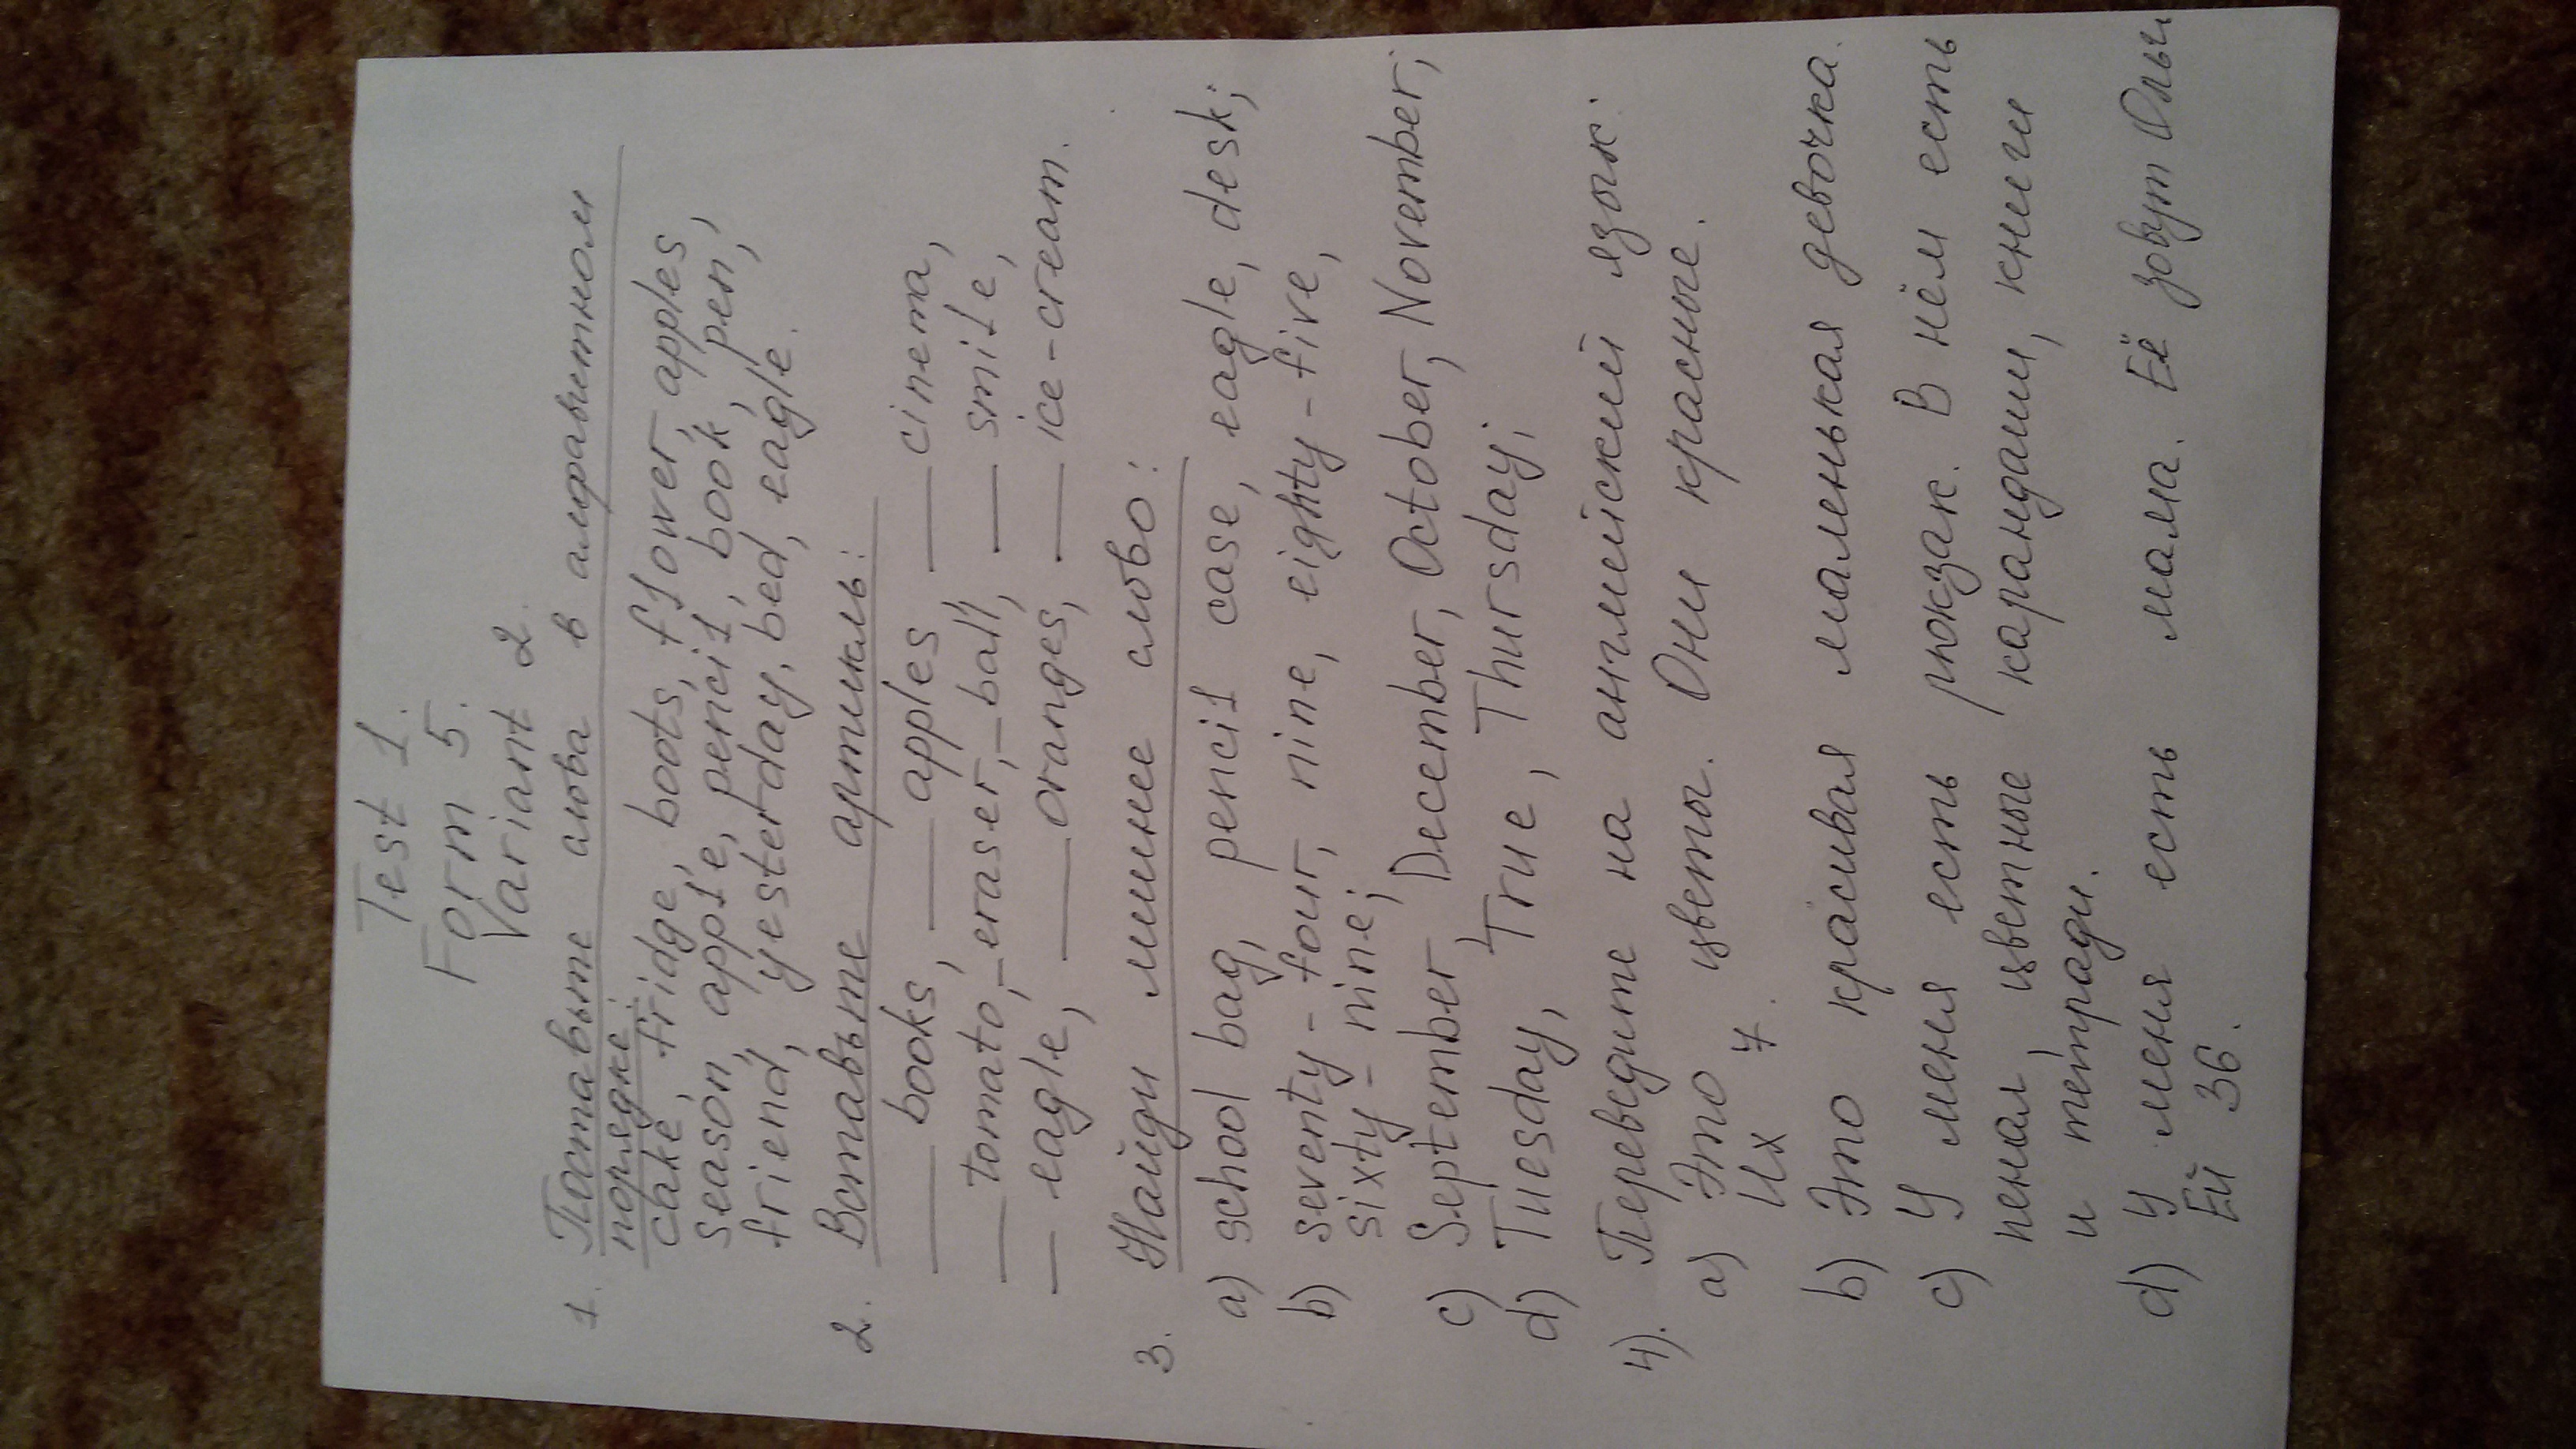 Test 1.
Form 5.
Variant 2.
1. Поставьте слова в алфавитном
порядке:
cake, fridge, boots, flower, apples,
season, apple, pencil, book, pen,
friend, yesterday, bed, eagle.
2. Вставьте артикль:
___ books, ___ apples ___ cinema,
___ tomato, _ eraser, _ ball, ___ smile,
__ eagle, ___ oranges, ___ ice-cream.
3. Найди лишнее слово:
a) school bag, pencil case, eagle, desk;
b) seventy-four, nine, eighty-five,
sixty-nine;
c) September, December, October, November;
d) Tuesday, True, Thursday;
4). Переведите на английский язык:
a) Это цветы. Они красные.
Их 7.
b) Это красивая маленькая девочка.
c) У меня есть рюкзак. В нём есть
пенал, цветные карандаши, книги
и тетради.
d) У меня есть мама. Её зовут Ольга
Ей 36.